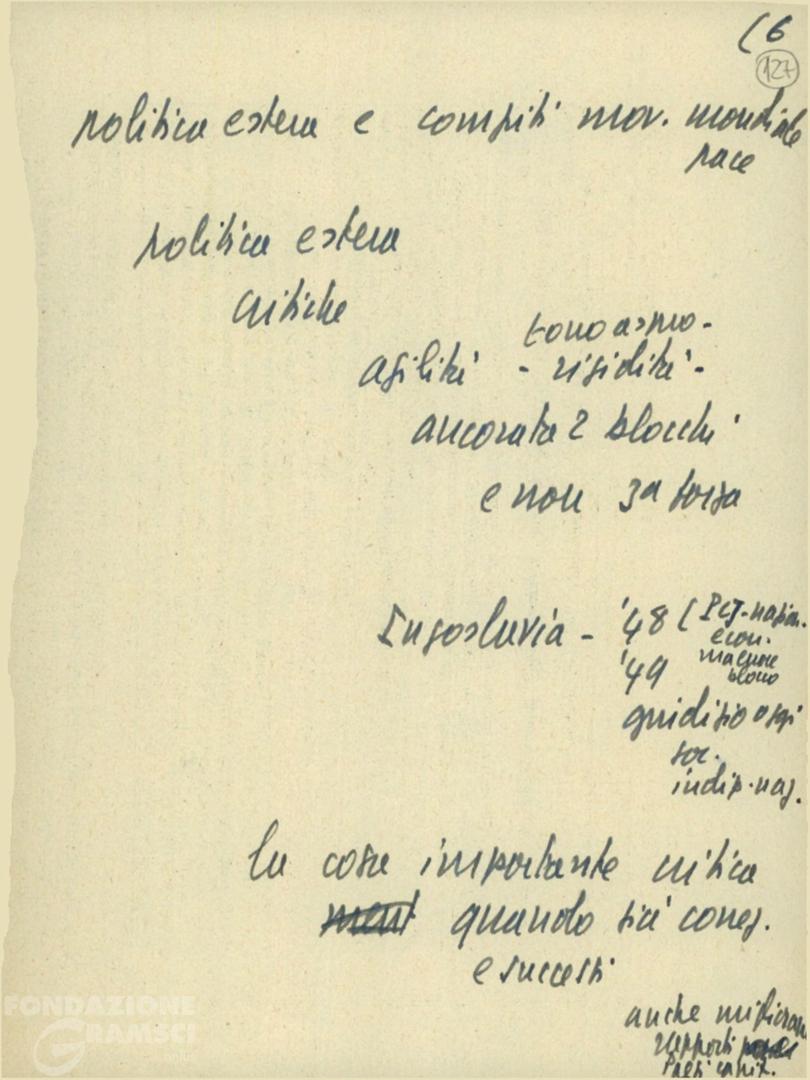 (6
127
politica estera e compiti mov. mondiale
pace
politica estera
critiche
tono aspro -
agilità - rigidità -
ancorata 2 blocchi
e non 3a forza
Iugoslavia - '48 ( Pcj - nazion.
econ.
'49
blocco
giudizio oggi
soc.
indip. naz.
la cosa importante critica
quando si è correg.
e successi
anche
rapporti
Paesi capit.
FONDAZIONE
GRAMSCI